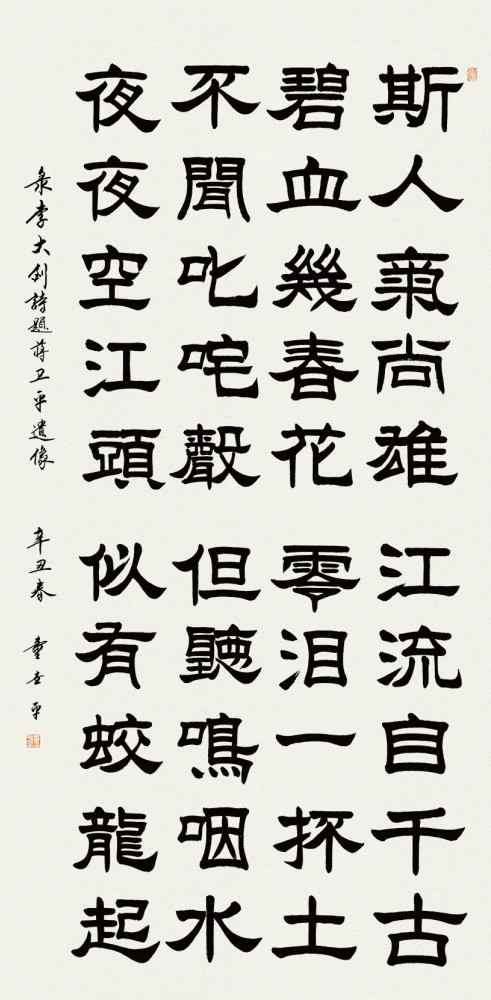 斯人氣尚雄 江流自千古
碧血幾春花 零泪一抔土
不聞叱咤聲 但聽鳴咽水
夜夜空江頭 似有蛟龍起
录李大釗詩題蔣卫平遺像 辛丑春 童世平